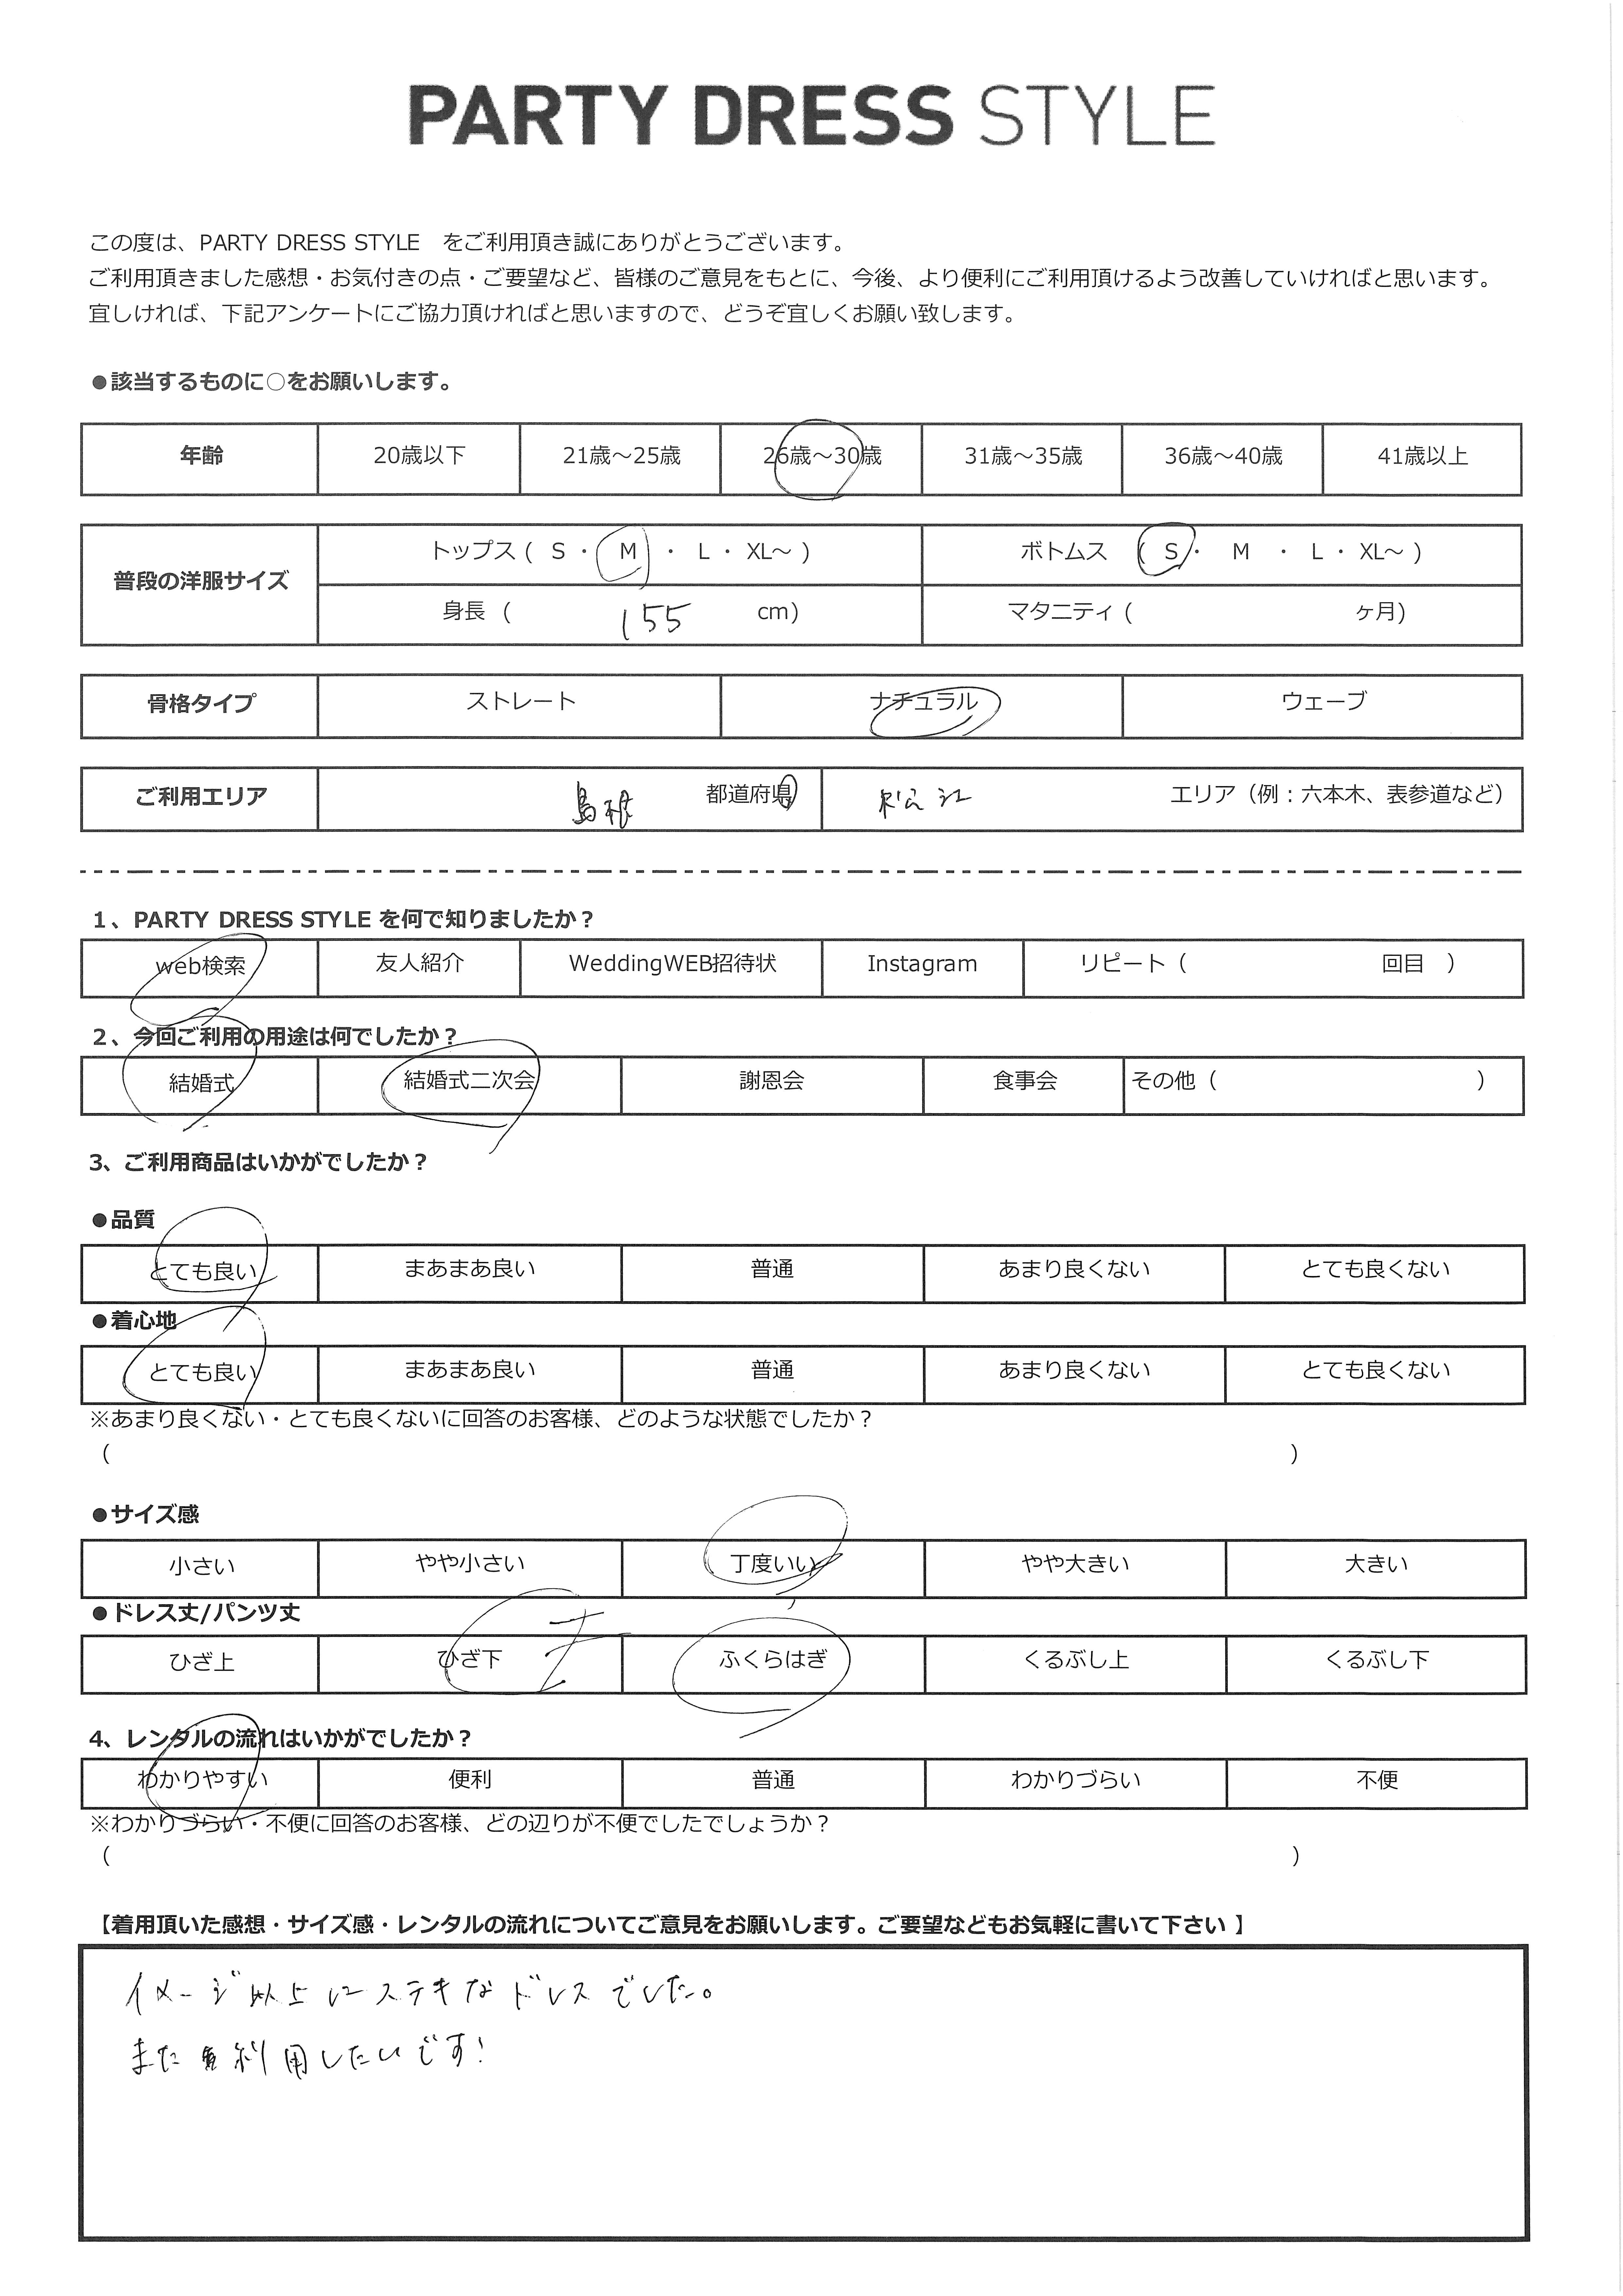 PARTY DRESS STYLE
この度は、PARTY DRESS STYLE をご利用頂き誠にありがとうございます。
ご利用頂きました感想・お気付きの点・ご要望など、皆様のご意見をもとに、今後、より便利にご利用頂けるよう改善していければと思います。
宜しければ、下記アンケートにご協力頂ければと思いますので、どうぞ宜しくお願い致します。
●該当するものに○をお願いします。
年齢 20歳以下 21歳～25歳 26歳～30歳 31歳～35歳 36歳～40歳 41歳以上
普段の洋服サイズ
トップス ( S ・ M ・ L ・ XL～ ) ボトムス ( S ・ M ・ L ・ XL～ )
身長 ( 155 cm) マタニティ ( ヶ月)
骨格タイプ ストレート ナチュラル ウェーブ
ご利用エリア 島根 都道府県 松江 エリア（例：六本木、表参道など）
1、PARTY DRESS STYLE を何で知りましたか？
web検索 友人紹介 WeddingWEB招待状 Instagram リピート（ 回目 ）
2、今回ご利用の用途は何でしたか？
結婚式 結婚式二次会 謝恩会 食事会 その他（ ）
3、ご利用商品はいかがでしたか？
●品質
とても良い まあまあ良い 普通 あまり良くない とても良くない
●着心地
とても良い まあまあ良い 普通 あまり良くない とても良くない
※あまり良くない・とても良くないに回答のお客様、どのような状態でしたか？
（ ）
●サイズ感
小さい やや小さい 丁度いい やや大きい 大きい
●ドレス丈/パンツ丈
ひざ上 ひざ下 ふくらはぎ くるぶし上 くるぶし下
4、レンタルの流れはいかがでしたか？
わかりやすい 便利 普通 わかりづらい 不便
※わかりづらい・不便に回答のお客様、どの辺りが不便でしたでしょうか？
（ ）
【着用頂いた感想・サイズ感・レンタルの流れについてご意見をお願いします。ご要望などもお気軽に書いて下さい 】
イメージ以上にステキなドレスでした。
また利用したいです!